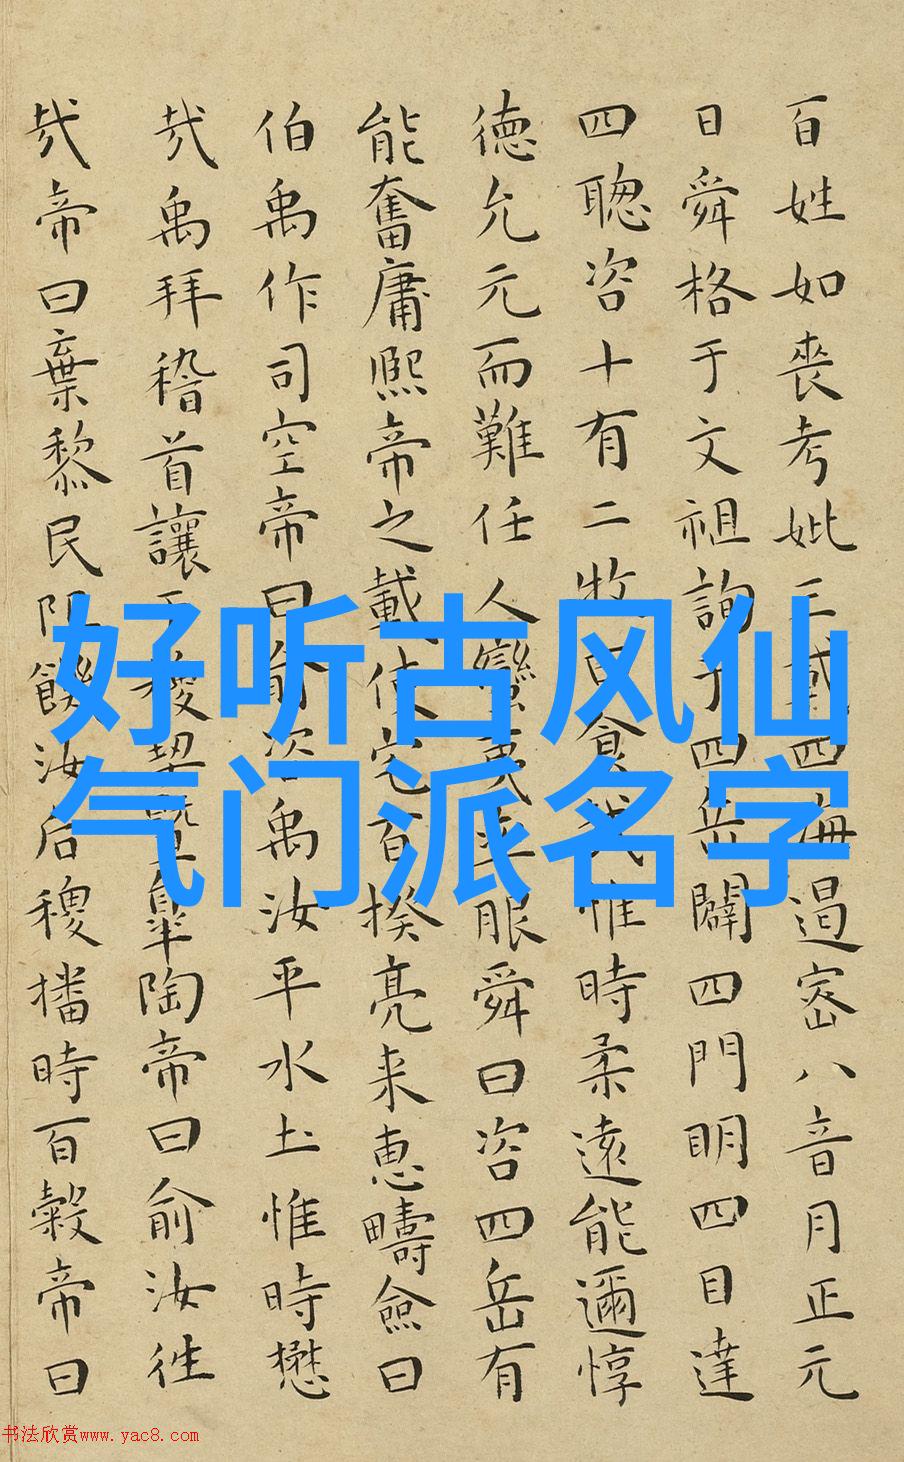 百姓如喪考妣三載四海遏密八音月正元
日舜格于文祖詢于四岳闢四門明四目達
四聰咨十有二牧曰食哉惟時柔遠能邇惇
德允元而難任人蠻夷率服舜曰咨四岳有
能奮庸熙帝之載使宅百揆亮采惠疇僉曰
伯禹作司空帝曰俞咨禹汝平水土惟時懋
哉禹拜稽首讓于稷契暨皋陶帝曰俞汝往
哉帝曰棄黎民阻饑汝后稷播時百穀帝曰
好听古风仙
气门派名字
书法欣赏www.yac8.com